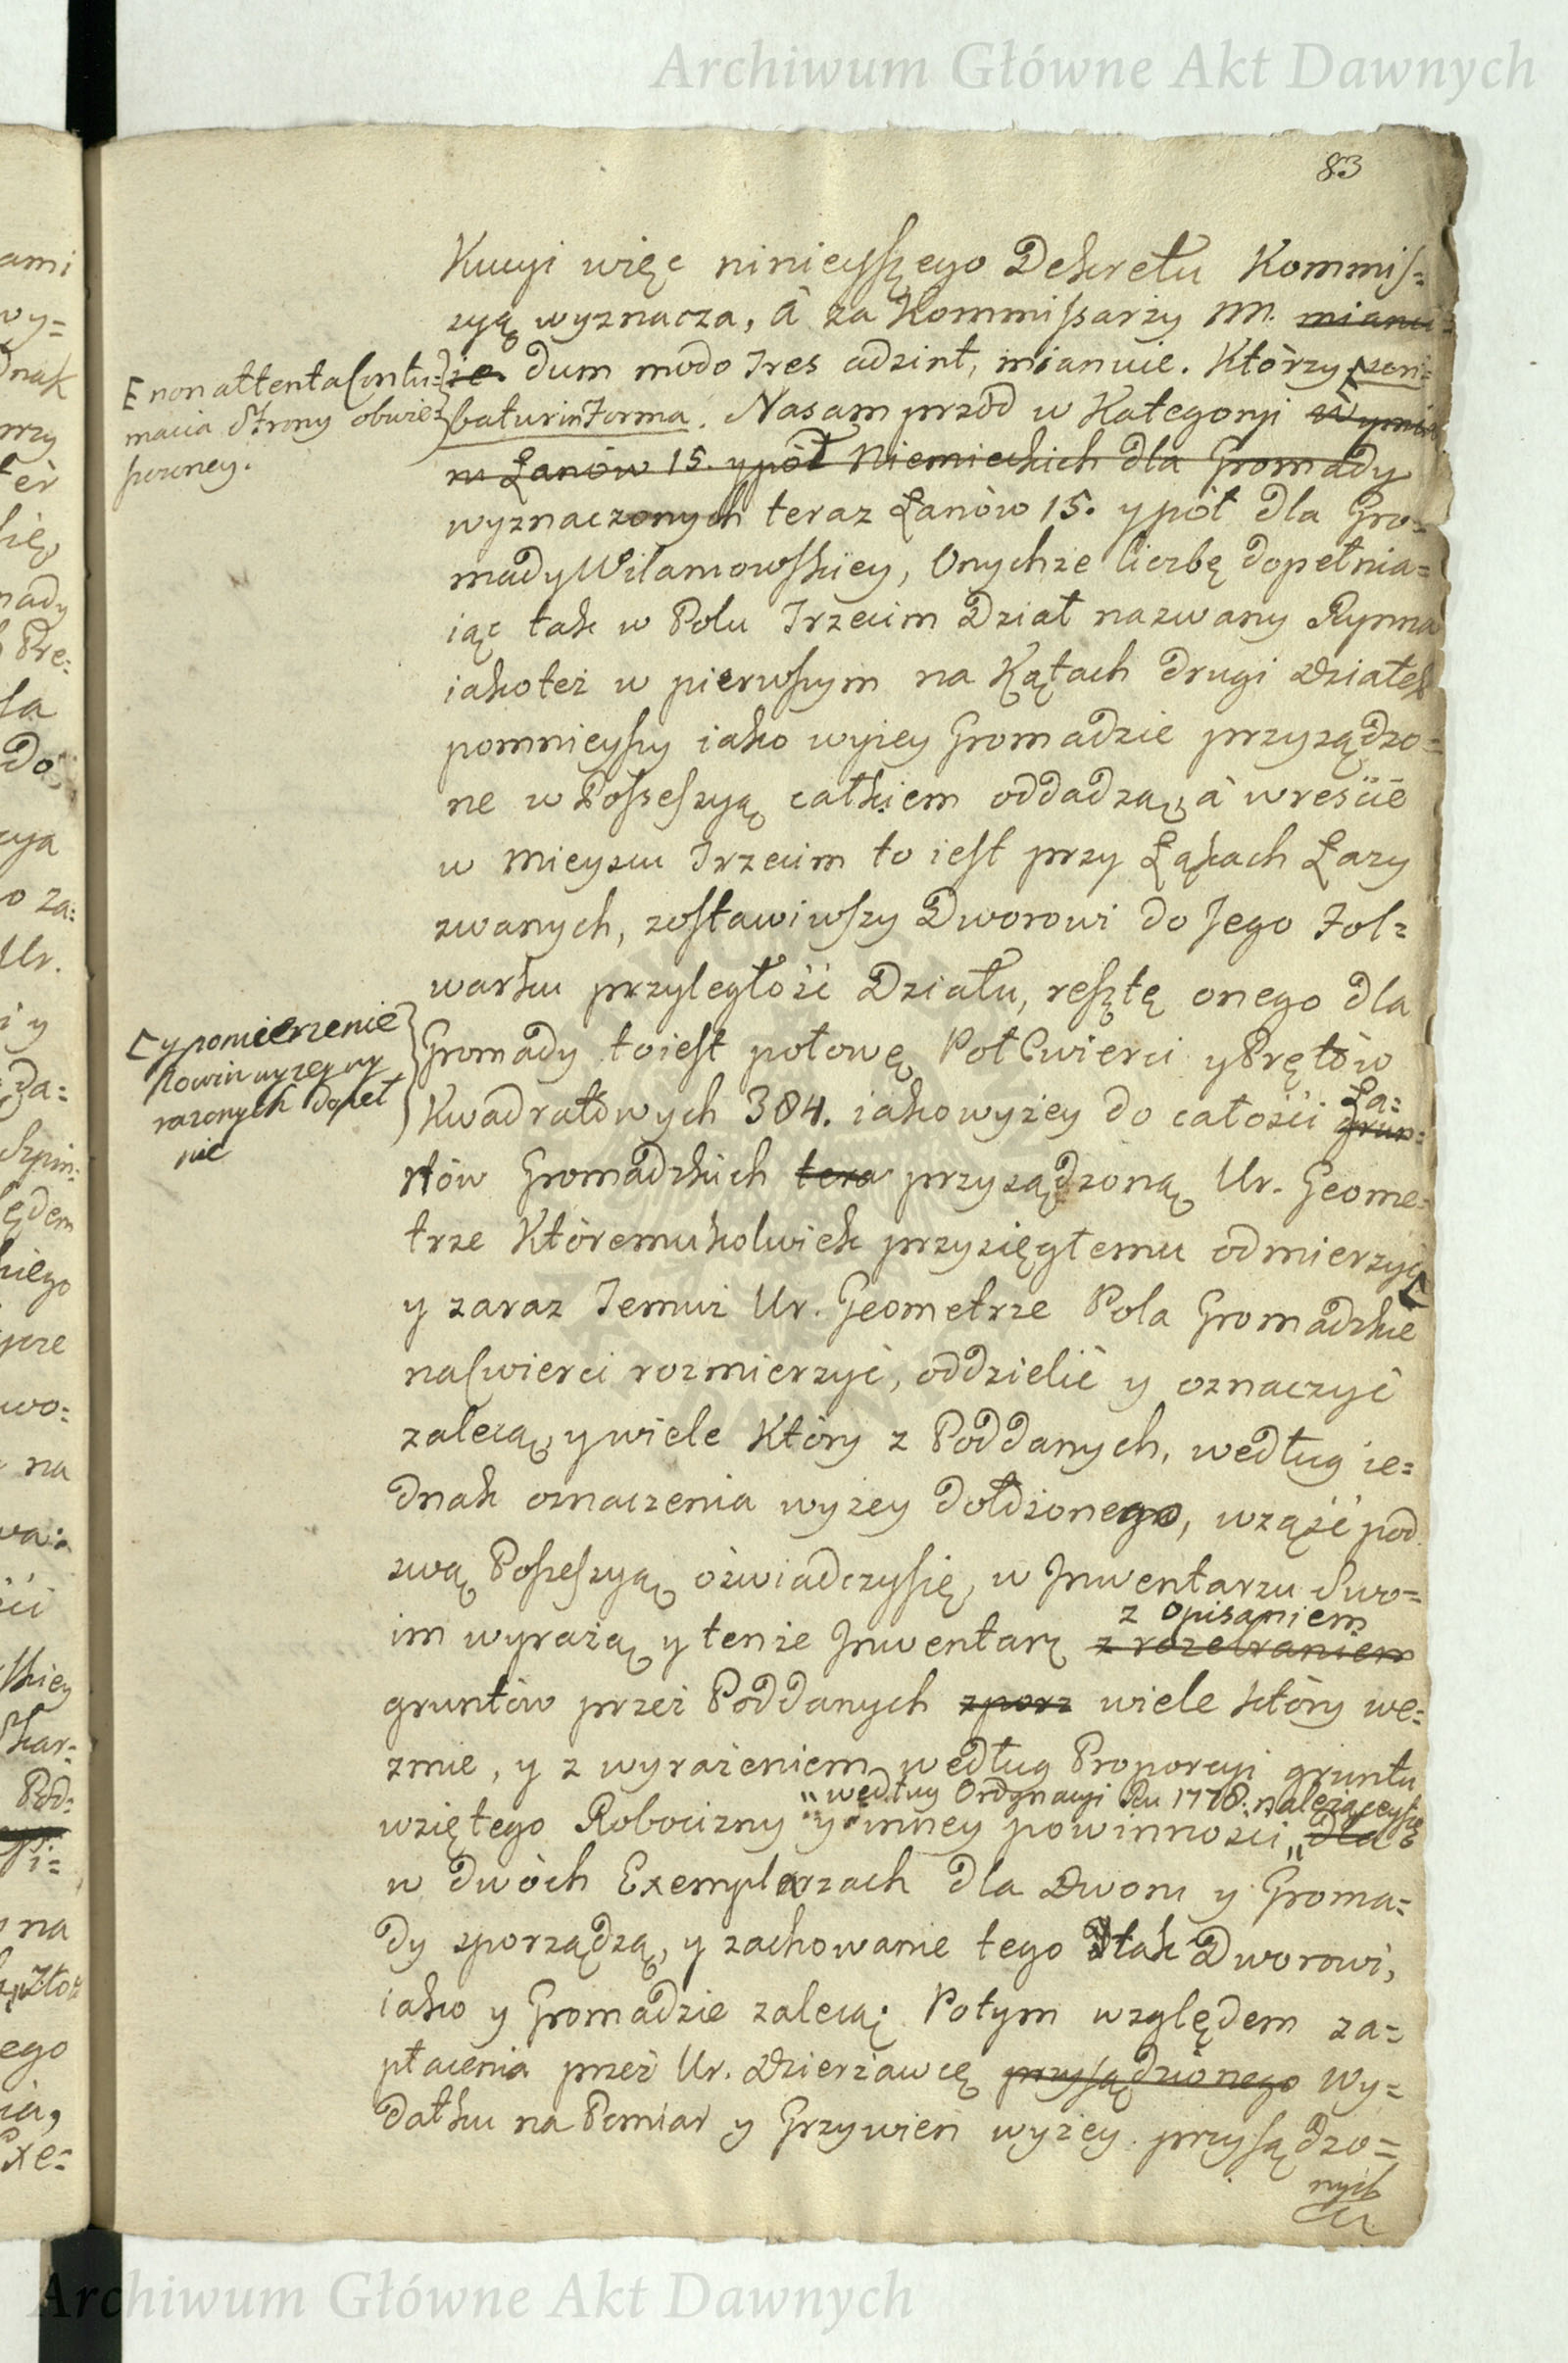 Archiwum Główne Akt Dawnych
83
Kucyi więc ninieyszęgo Dekretu Kommis=
syą wyznacza, á za Kommissarzy M. mianu=
ie. dum modo Tres adsint, mianuie. Którzy scri=
baturinForma. Nasam przód w Kategoryi
m Łanów 15. ypół Niemieckich dla Gromady
wyznaczonych teraz Łanów 15. ypół dla Gro=
mady Wilamowskiey, Onychże liczbę dopełnia=
iąc tak w Polu Trzecim Dział nazwany Rynna
iakoteż w pierwszym na Kątach drugi Działek
pomnieyszy iako wyżey Gromadzie przysądzo=
ne w Possessyą całkiem oddadzą, á wreście
w Mieyscu Trzecim to iest przy Łąkach Łazy
zwanych, zostawiwszy Dworowi do Jego Fol=
warku przyległość Działu, resztę onego dla
Gromady toiest połowę Poł Cwierci yPrętów
Kwadratowych 384. iakowyżey do całości Grun=
Ła=
nów Gromadzkich tera przysądzoną Ur. Geome=
trze Któremukolwiek przysięgłemu odmierzyć
y zaraz Temuż Ur. Geometrze Pola Gromadzkie
naCwierci rozmierzyć, oddzielić y oznaczyć
zalecą, ywiele Który z Poddanych, według ie=
dnak oznaczenia wyżey dołożonego, wziąść pod
swą Possessyą oświadczysię, w Inwentarzu Swo=
im wyrażą y tenże Inwentarz z rozebraniem
z opisaniem
gruntów przez Poddanych sporz wiele który we=
zmie, y z wyrażeniem według Proporcyi gruntu
według Ordynacyi Ru 1778. należąceysię
wziętego Robocizny y inney powinności, dla
w dwóch Exemplarzach dla Dworu y Groma=
dy sporządzą, y zachowanie tego tak Dworowi,
iako y Gromadzie zalecą; Potym względem za=
płacenia przez Ur. Dzierżawcę przysądzionego Wy=
datku na Pomiar y Grzywien wyżey przysądzo=
nych
E non attenta Contu=
macia Strony obwies
y pomierzenie
Nowin wyżey wy
rażonych dopeł
nić
Archiwum Główne Akt Dawnych